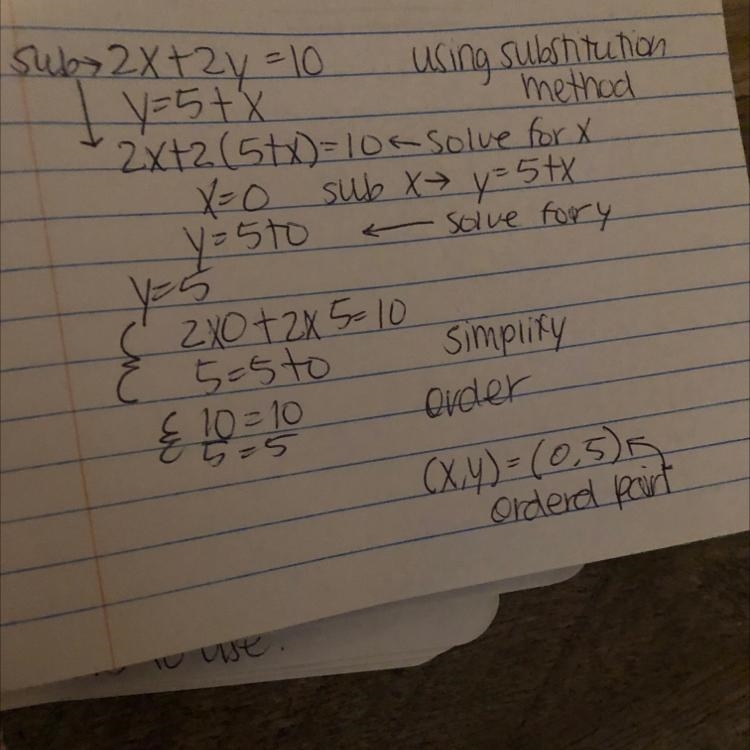 sub→ 2x+2y=10 using substitution
method
y=5+x
2x+2(5+x)=10 ← solve for x
x=0 sub x→ y=5+x
y=5+0 ← solve for y
y=5
{ 2x0+2x5=10
{ 5=5+0
simplify
{ 10=10
{ 5=5
order
(x,y)=(0,5)
ordered pair
use.